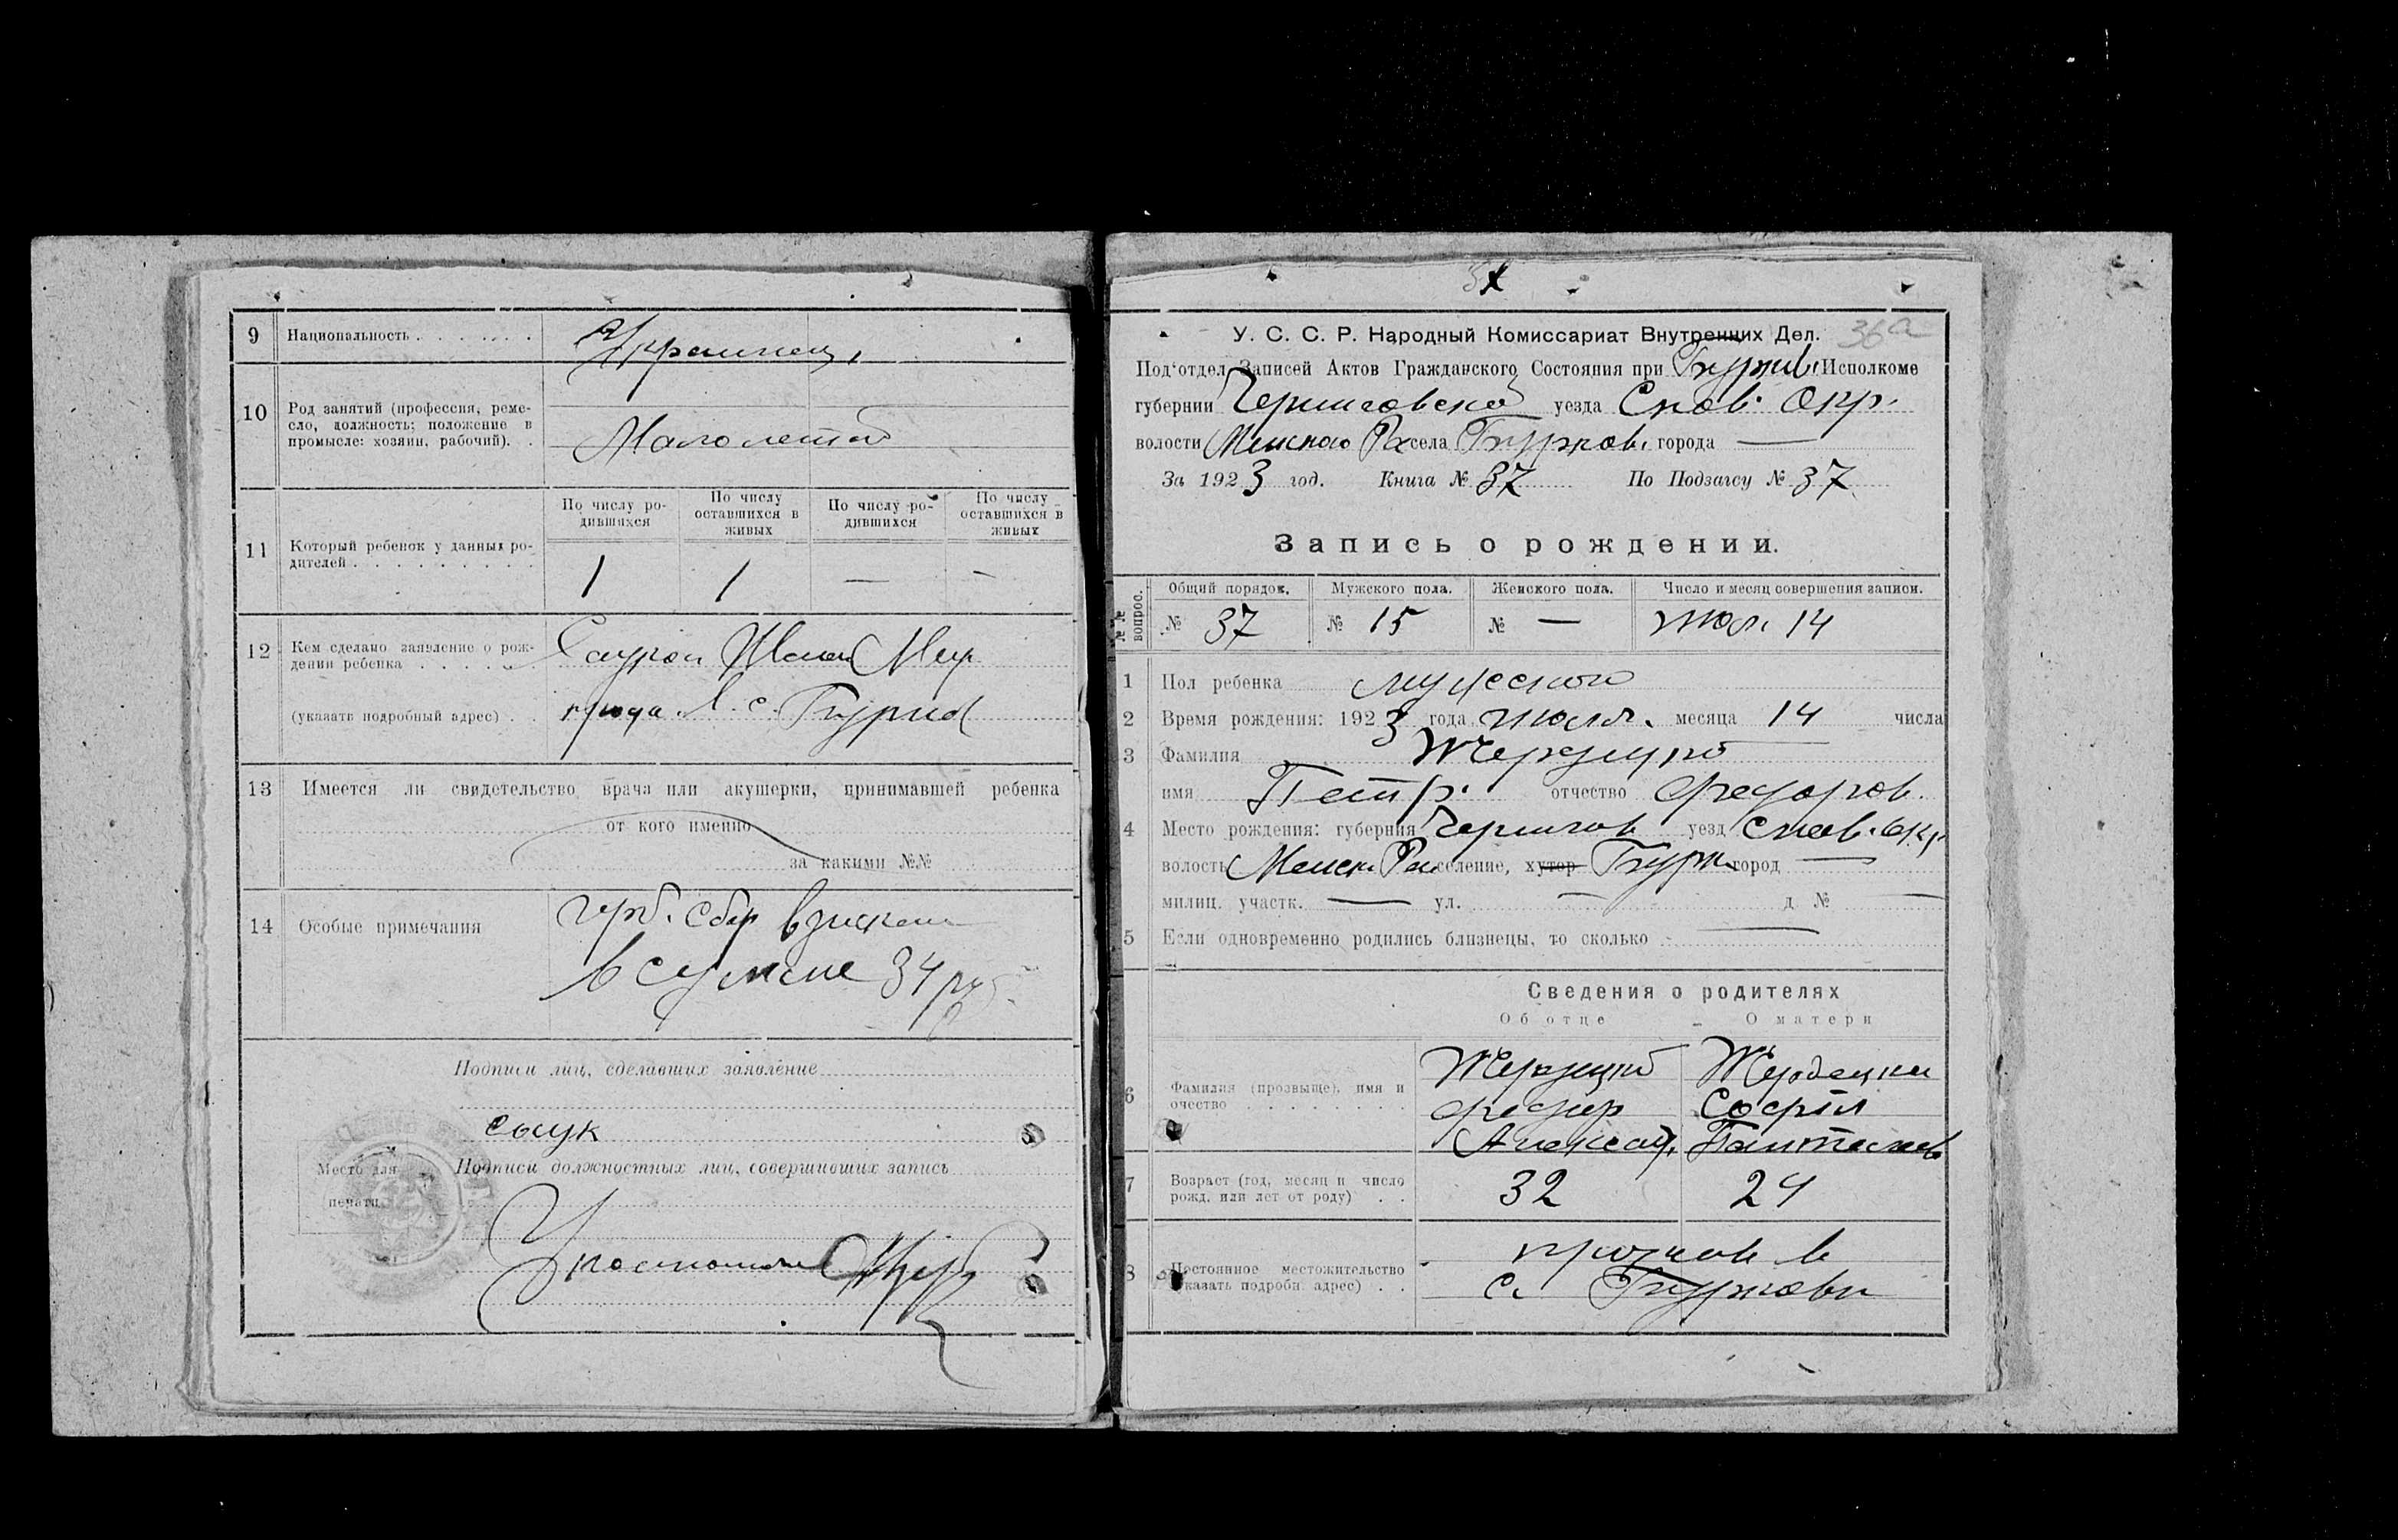 9 Национальность Украинец,
10 Род занятий (профессия, реме-
сло, должность; положение в
промысле: хозяин, рабочий).
Малолетой
По числу ро-
дившихся
По числу
оставшихся в
живых
По числу ро-
дившихся
По числу
оставшихся в
живых
11 Который ребенок у данных ро-
дителей
1 1 — —
12 Кем сделано заявление о рож-
дении ребенка
(указать подробный адрес) с.
13 Имеется ли свидетельство врача или акушерки, принимавшей ребенка
от кого именно
за какими №№
14 Особые примечания
сбор взыскан
в сумме 34 руб.
Подписи лиц, сделавших заявление
Подписи должностных лиц, совершивших запись
Место для
печати
37
36а
У. С. С. Р. Народный Комиссариат Внутренних Дел.
Под'отдел Записей Актов Гражданского Состояния при Бурков. Исполкоме
губернии Черниговской уезда Снов. Окр.
волости Менского Ра села Бурков. города —
За 1923 год. Книга № 37 По Подзагсу № 37
Запись о рождении.
№№ вопрос.
Общий порядок. Мужского пола. Женского пола. Число и месяц совершения записи.
№ 37 № 15 № — Июл. 14
1 Пол ребенка мужского
2 Время рождения: 1923 года июля. месяца 14 числа
3 Фамилия Жердецкий
имя Петр. отчество Федоров.
4 Место рождения: губерния Чернигов уезд Снов. Окр.
волость Менск. Ра селение, хутор Бурк. город —
милиц. участк. — ул. — д № —
5 Если одновременно родились близнецы, то сколько —
Сведения о родителях
Об отце О матери
6 Фамилия (прозвище), имя и
очество
Жердецкий
Федор
Александ.
Жердецкая
София
Пантелеев
7 Возраст (год, месяц и число
рожд. или лет от роду)
32 24
8 Постоянное местожительство
(указать подробн. адрес)
в
с. Бурковки